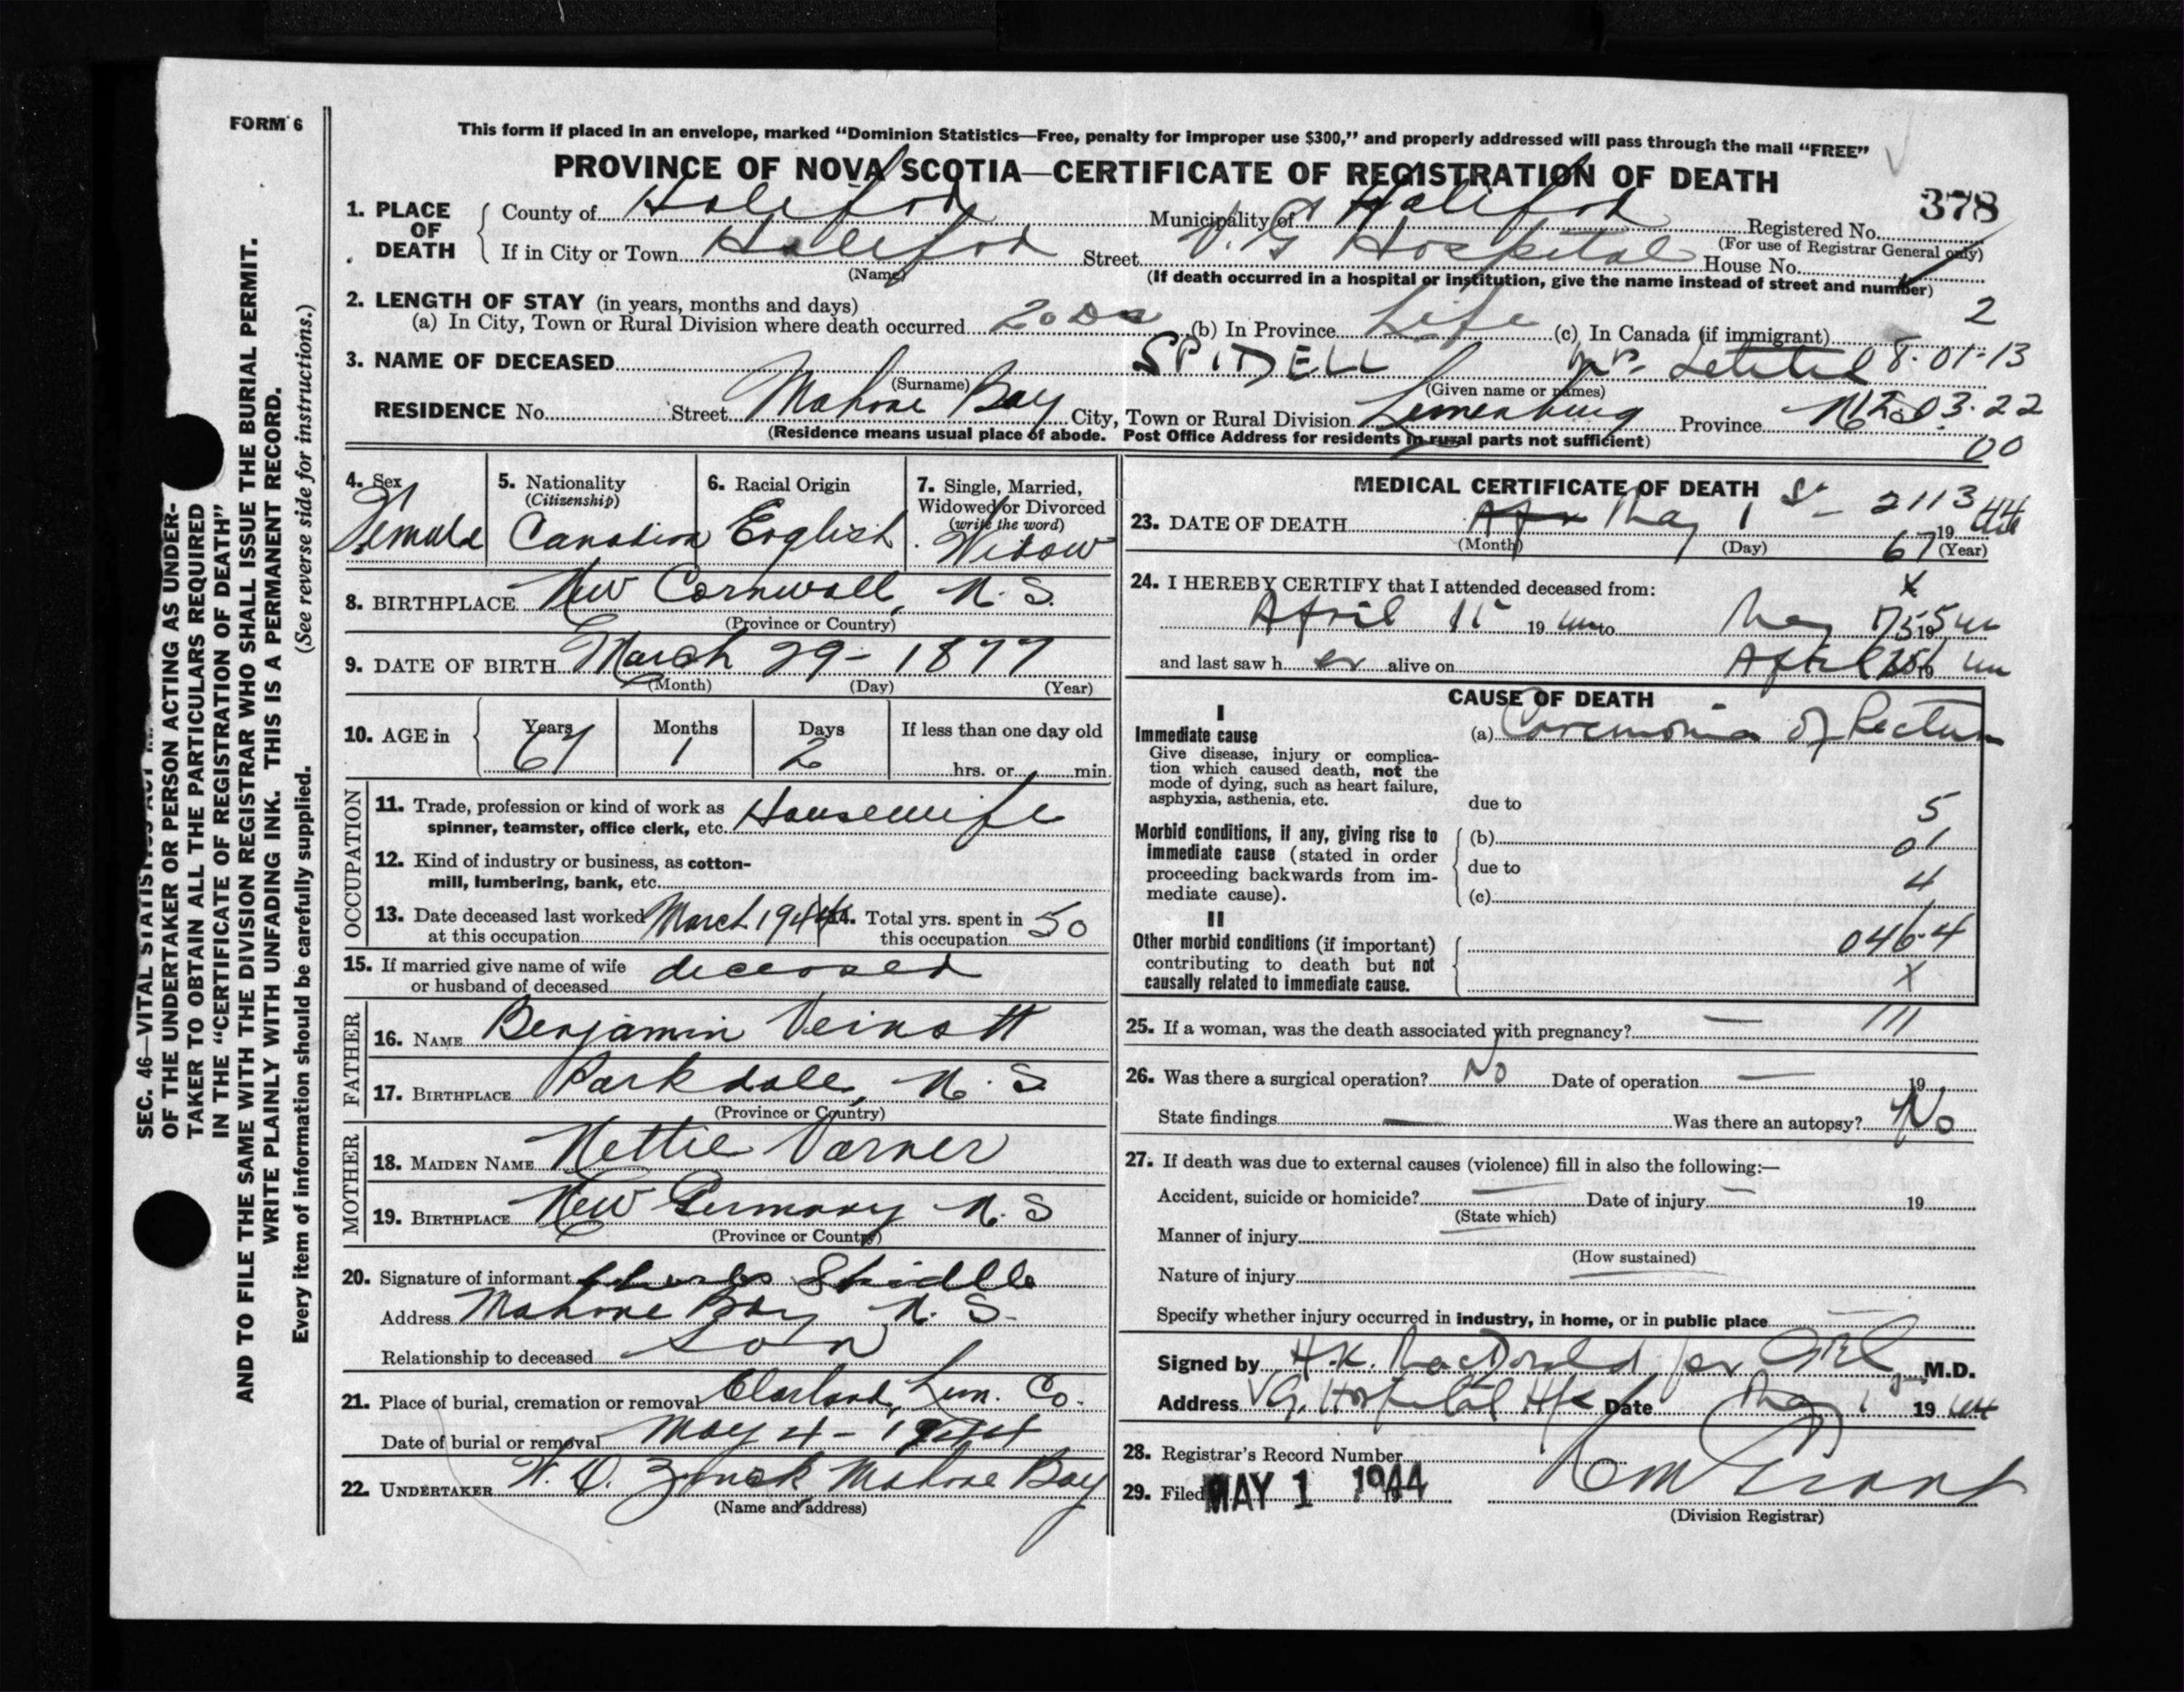 FORM 6
This form if placed in an envelope, marked "Dominion Statistics—Free, penalty for improper use $300," and properly addressed will pass through the mail "FREE"
PROVINCE OF NOVA SCOTIA—CERTIFICATE OF REGISTRATION OF DEATH
378
1. PLACE OF DEATH
County of Halifax Municipality of Halifax Registered No.
(For use of Registrar General only)
If in City or Town Halifax Street V. G Hospital House No.
(Name)
(If death occurred in a hospital or institution, give the name instead of street and number)
2. LENGTH OF STAY (in years, months and days)
2
(a) In City, Town or Rural Division where death occurred 20 Ds (b) In Province Life (c) In Canada (if immigrant)
3. NAME OF DECEASED SPIDELL Mrs. Letitia 08-01-13
(Surname) (Given name or names)
RESIDENCE No. Street Mahone Bay City, Town or Rural Division Lunenburg Province 03-22
(Residence means usual place of abode. Post Office Address for residents in rural parts not sufficient)
00
4. Sex
Female
5. Nationality
(Citizenship)
Canadian
6. Racial Origin
English
7. Single, Married, Widowed or Divorced
(write the word)
Widow
8. BIRTHPLACE New Cornwall, N. S.
(Province or Country)
9. DATE OF BIRTH March 29 - 1877
(Month) (Day) (Year)
10. AGE in Years Months Days If less than one day old
67 1 2 hrs. or min.
OCCUPATION
11. Trade, profession or kind of work as spinner, teamster, office clerk, etc. Housewife
12. Kind of industry or business, as cotton-mill, lumbering, bank, etc.
13. Date deceased last worked at this occupation March 1944
14. Total yrs. spent in this occupation 50
15. If married give name of wife or husband of deceased deceased
FATHER
16. NAME Benjamin Veinott
17. BIRTHPLACE Parkdale, N. S
(Province or Country)
MOTHER
18. MAIDEN NAME Nettie Varner
19. BIRTHPLACE New Germany N. S
(Province or Country)
20. Signature of informant Charles Spidlle
Address Mahone Bay N. S.
Relationship to deceased Son
21. Place of burial, cremation or removal Clarland, Lun. Co.
Date of burial or removal May 4 - 1944
22. UNDERTAKER W. D. Zinck Mahone Bay
(Name and address)
MEDICAL CERTIFICATE OF DEATH
2113
23. DATE OF DEATH May 1 19 44
(Month) (Day) (Year)
67
24. I HEREBY CERTIFY that I attended deceased from:
April 11 19 44 to May 19 44
and last saw her alive on April 19 44
CAUSE OF DEATH
I
Immediate cause
Give disease, injury or complication which caused death, not the mode of dying, such as heart failure, asphyxia, asthenia, etc.
(a) Carcinoma of Rectum
due to
5
Morbid conditions, if any, giving rise to immediate cause (stated in order proceeding backwards from immediate cause).
(b) 01
due to
4
(c)
II
Other morbid conditions (if important) contributing to death but not causally related to immediate cause.
046.4
X
25. If a woman, was the death associated with pregnancy? — 111
26. Was there a surgical operation? No Date of operation — 19
State findings — Was there an autopsy? No
27. If death was due to external causes (violence) fill in also the following:—
Accident, suicide or homicide? — Date of injury — 19
(State which)
Manner of injury
(How sustained)
Nature of injury
Specify whether injury occurred in industry, in home, or in public place
Signed by H.K. MacDonald per M.D.
Address V.G. Hospital Hfx Date May 1 19 44
28. Registrar's Record Number
29. Filed MAY 1 1944
(Division Registrar)
OF THE UNDERTAKER OR PERSON ACTING AS UNDER-
TAKER TO OBTAIN ALL THE PARTICULARS REQUIRED
IN THE "CERTIFICATE OF REGISTRATION OF DEATH"
AND TO FILE THE SAME WITH THE DIVISION REGISTRAR WHO SHALL ISSUE THE BURIAL PERMIT.
WRITE PLAINLY WITH UNFADING INK. THIS IS A PERMANENT RECORD.
Every item of information should be carefully supplied. (See reverse side for instructions.)
SEC. 46—VITAL STATISTICS ACT